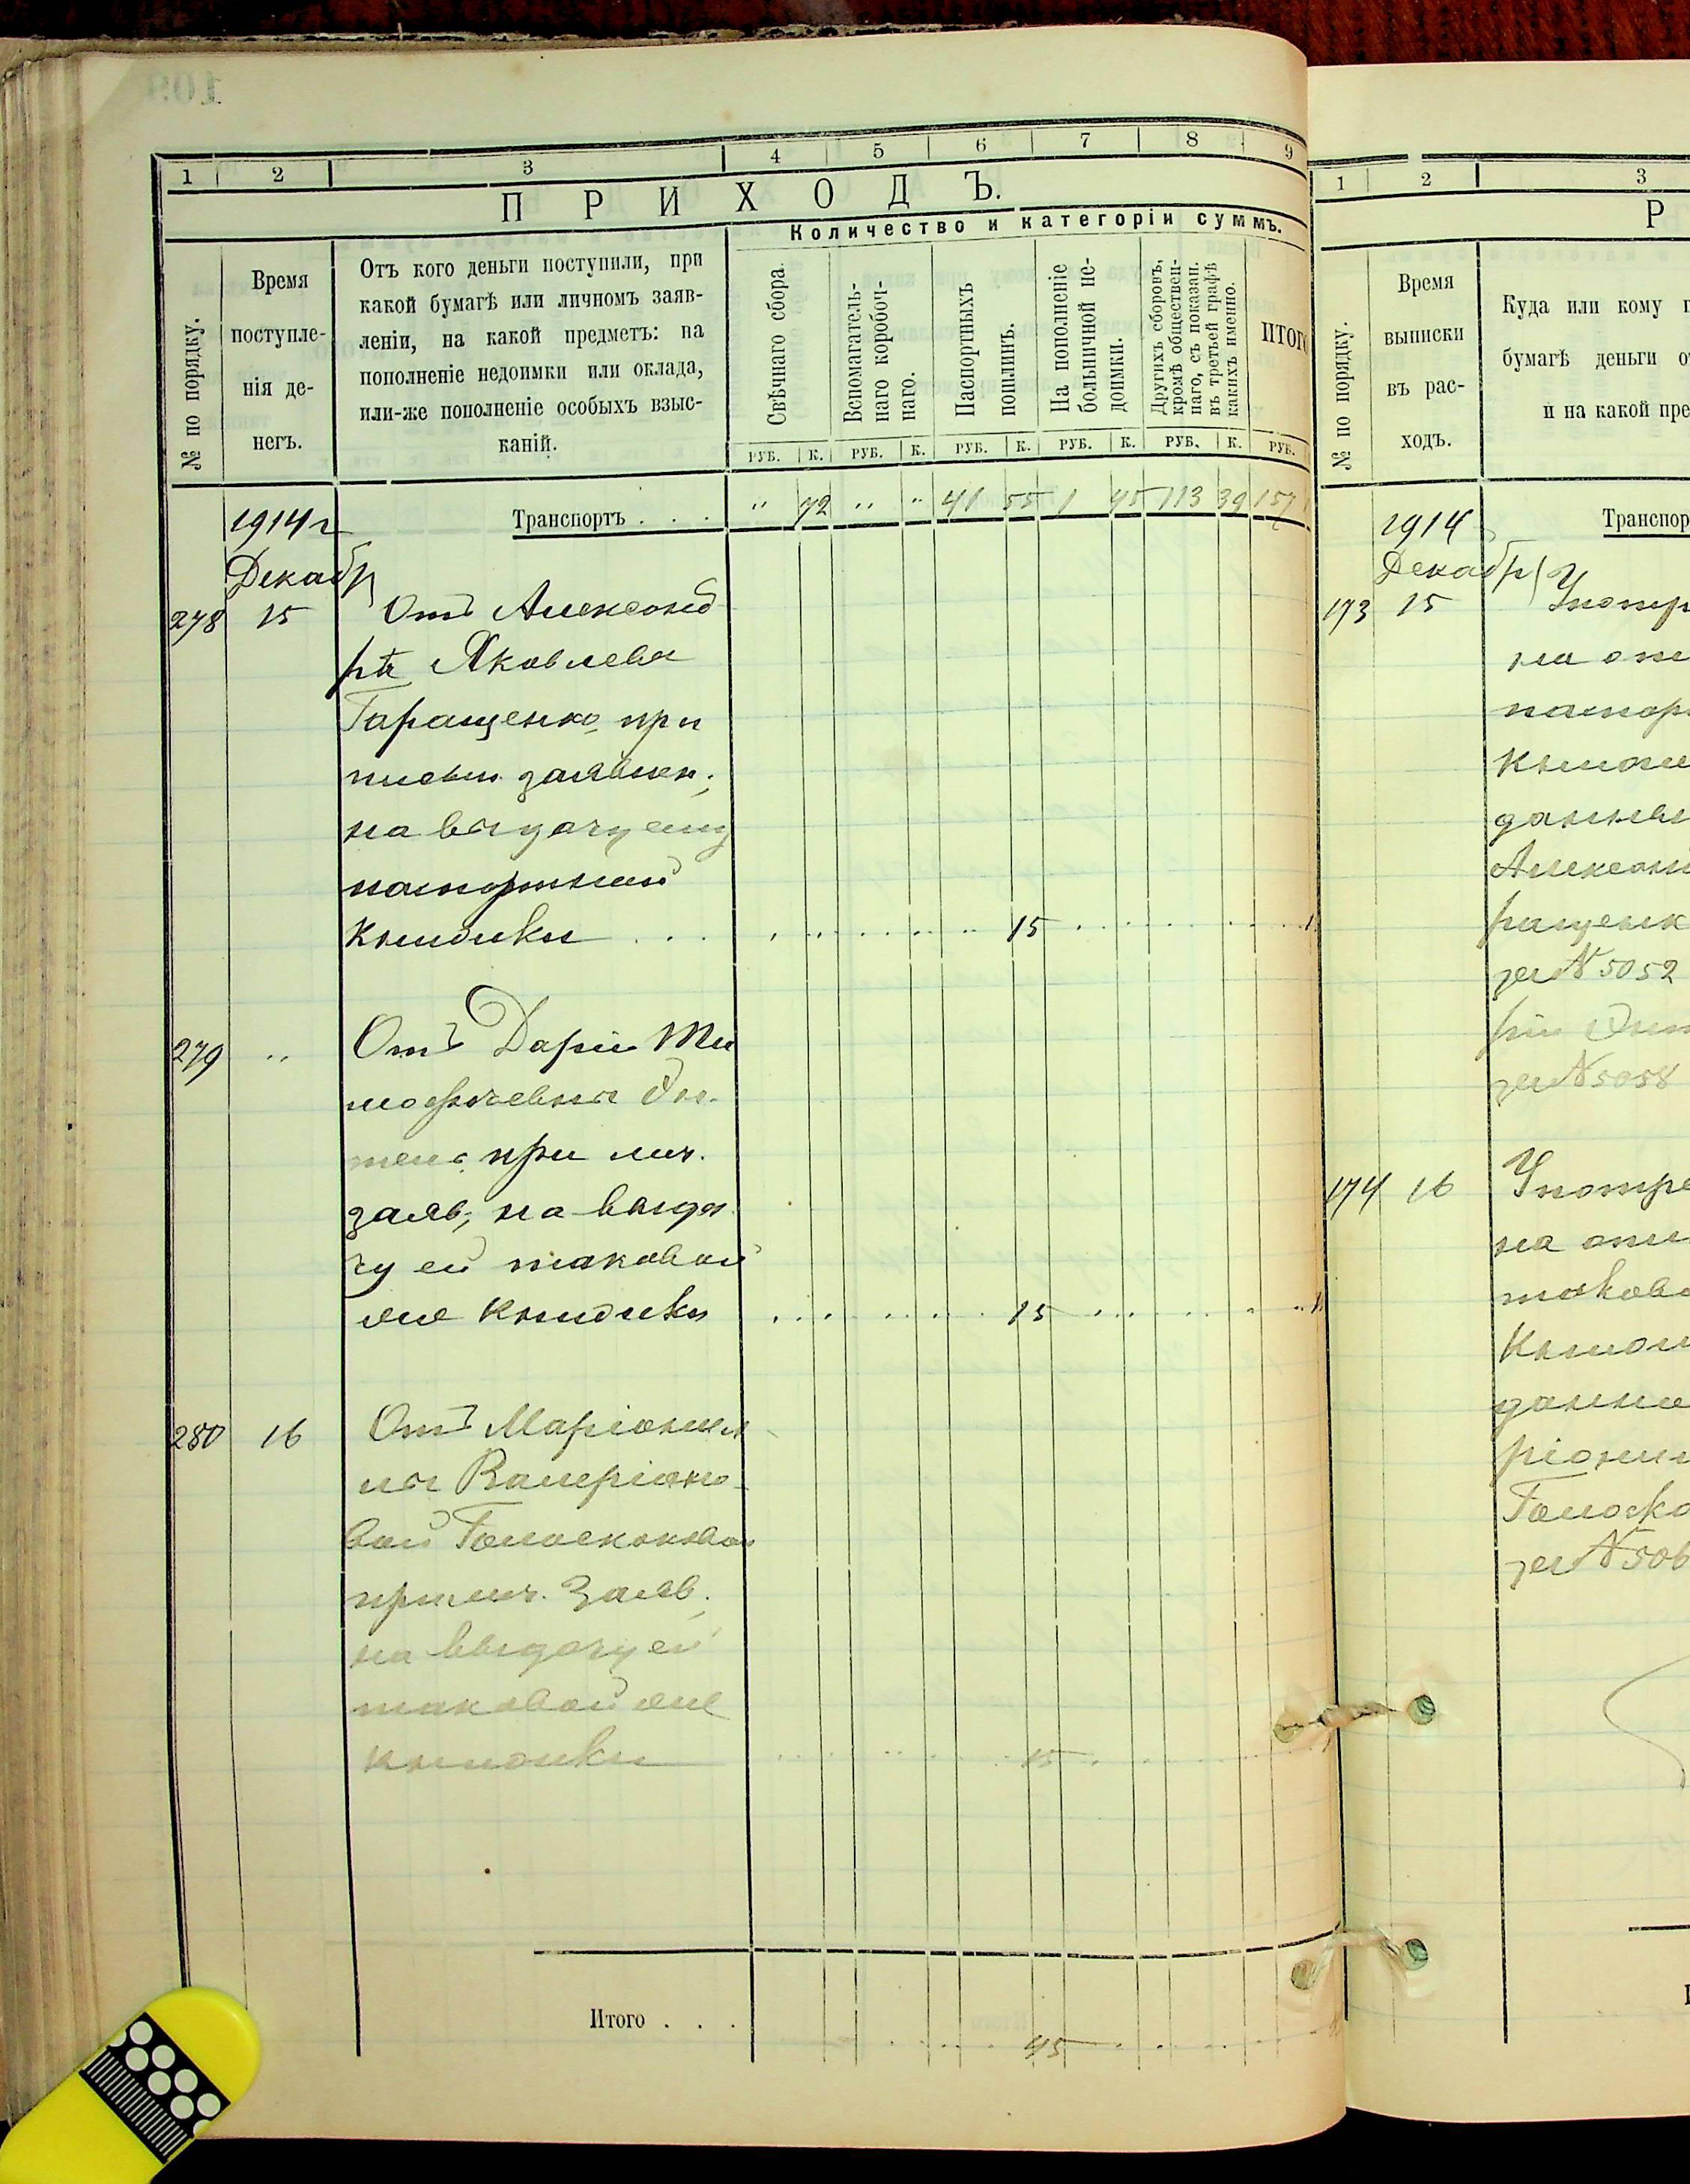 1 2 3 4 5 6 7 8 9
ПРИХОДЪ.
Количество и категоріи суммъ.
№ по порядку.
Время
поступле-
нія де-
негъ.
Отъ кого деньги поступили, при
какой бумагѣ или личномъ заяв-
леніи, на какой предметъ: на
пополненіе недоимки или оклада,
или-же пополненіе особыхъ взыс-
каній.
Свѣчнаго сбора.
Вспомагатель-
наго коробоч-
наго.
Паспортныхъ
пошлинъ.
На пополненіе
больничной не-
доимки.
Другихъ сборовъ,
кромѣ обществен-
наго, съ показан.
въ третьей графѣ
какихъ именно.
ИТОГО
РУБ. К. РУБ. К. РУБ. К. РУБ. К. РУБ. К. РУБ.
1914 г
Транспортъ . . . " 72 " " 41 55 1 45 113 39 157
Декабр
278 15 Отъ Александ
ра Яковлева
Таращенко при
заявлен.
на выдачу ему
паспортной
книжки . . . 15
279 " Отъ Дарьи Ти
мофѣевны
при лич.
заяв., на выда
чу ей таковой
же книжки 15
280 16 Отъ Маріон
ны Валеріано
вой
при лич. заяв.
на выдачу ей
таковой же
книжки 15
Итого . . . 45
1 2 3
Р
№ по порядку.
Время
выписки
въ рас-
ходъ.
Куда или кому п
бумагѣ деньги от
и на какой пре
1914
Транспор
Декабр
173 15 Употр
на
паспор
данны
Александ
ращенк
за № 5052
за № 5058
174 16 Употре
на
таково
данно
ріонн
Голоско
за № 506